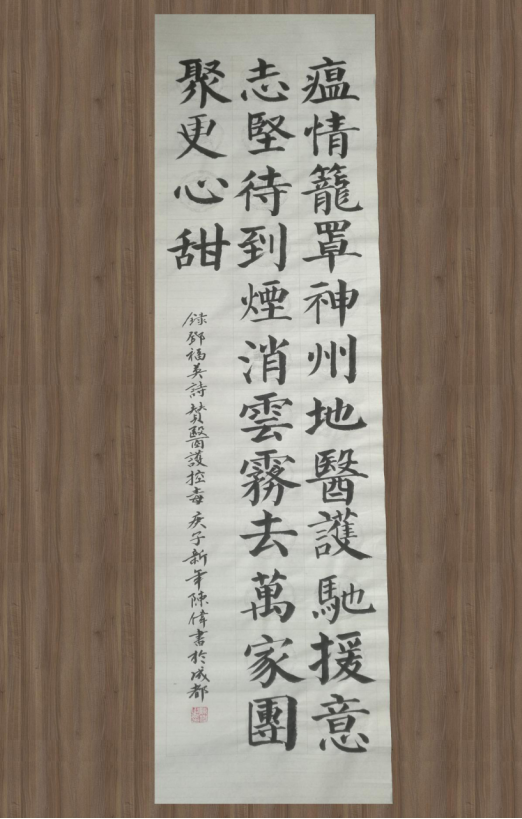 瘟情籠罩神州地醫護馳援意
志堅待到煙消雲霧去萬家團
聚更心甜
錄鄧福英詩贊醫護控毒庚子新年陳偉書於成都